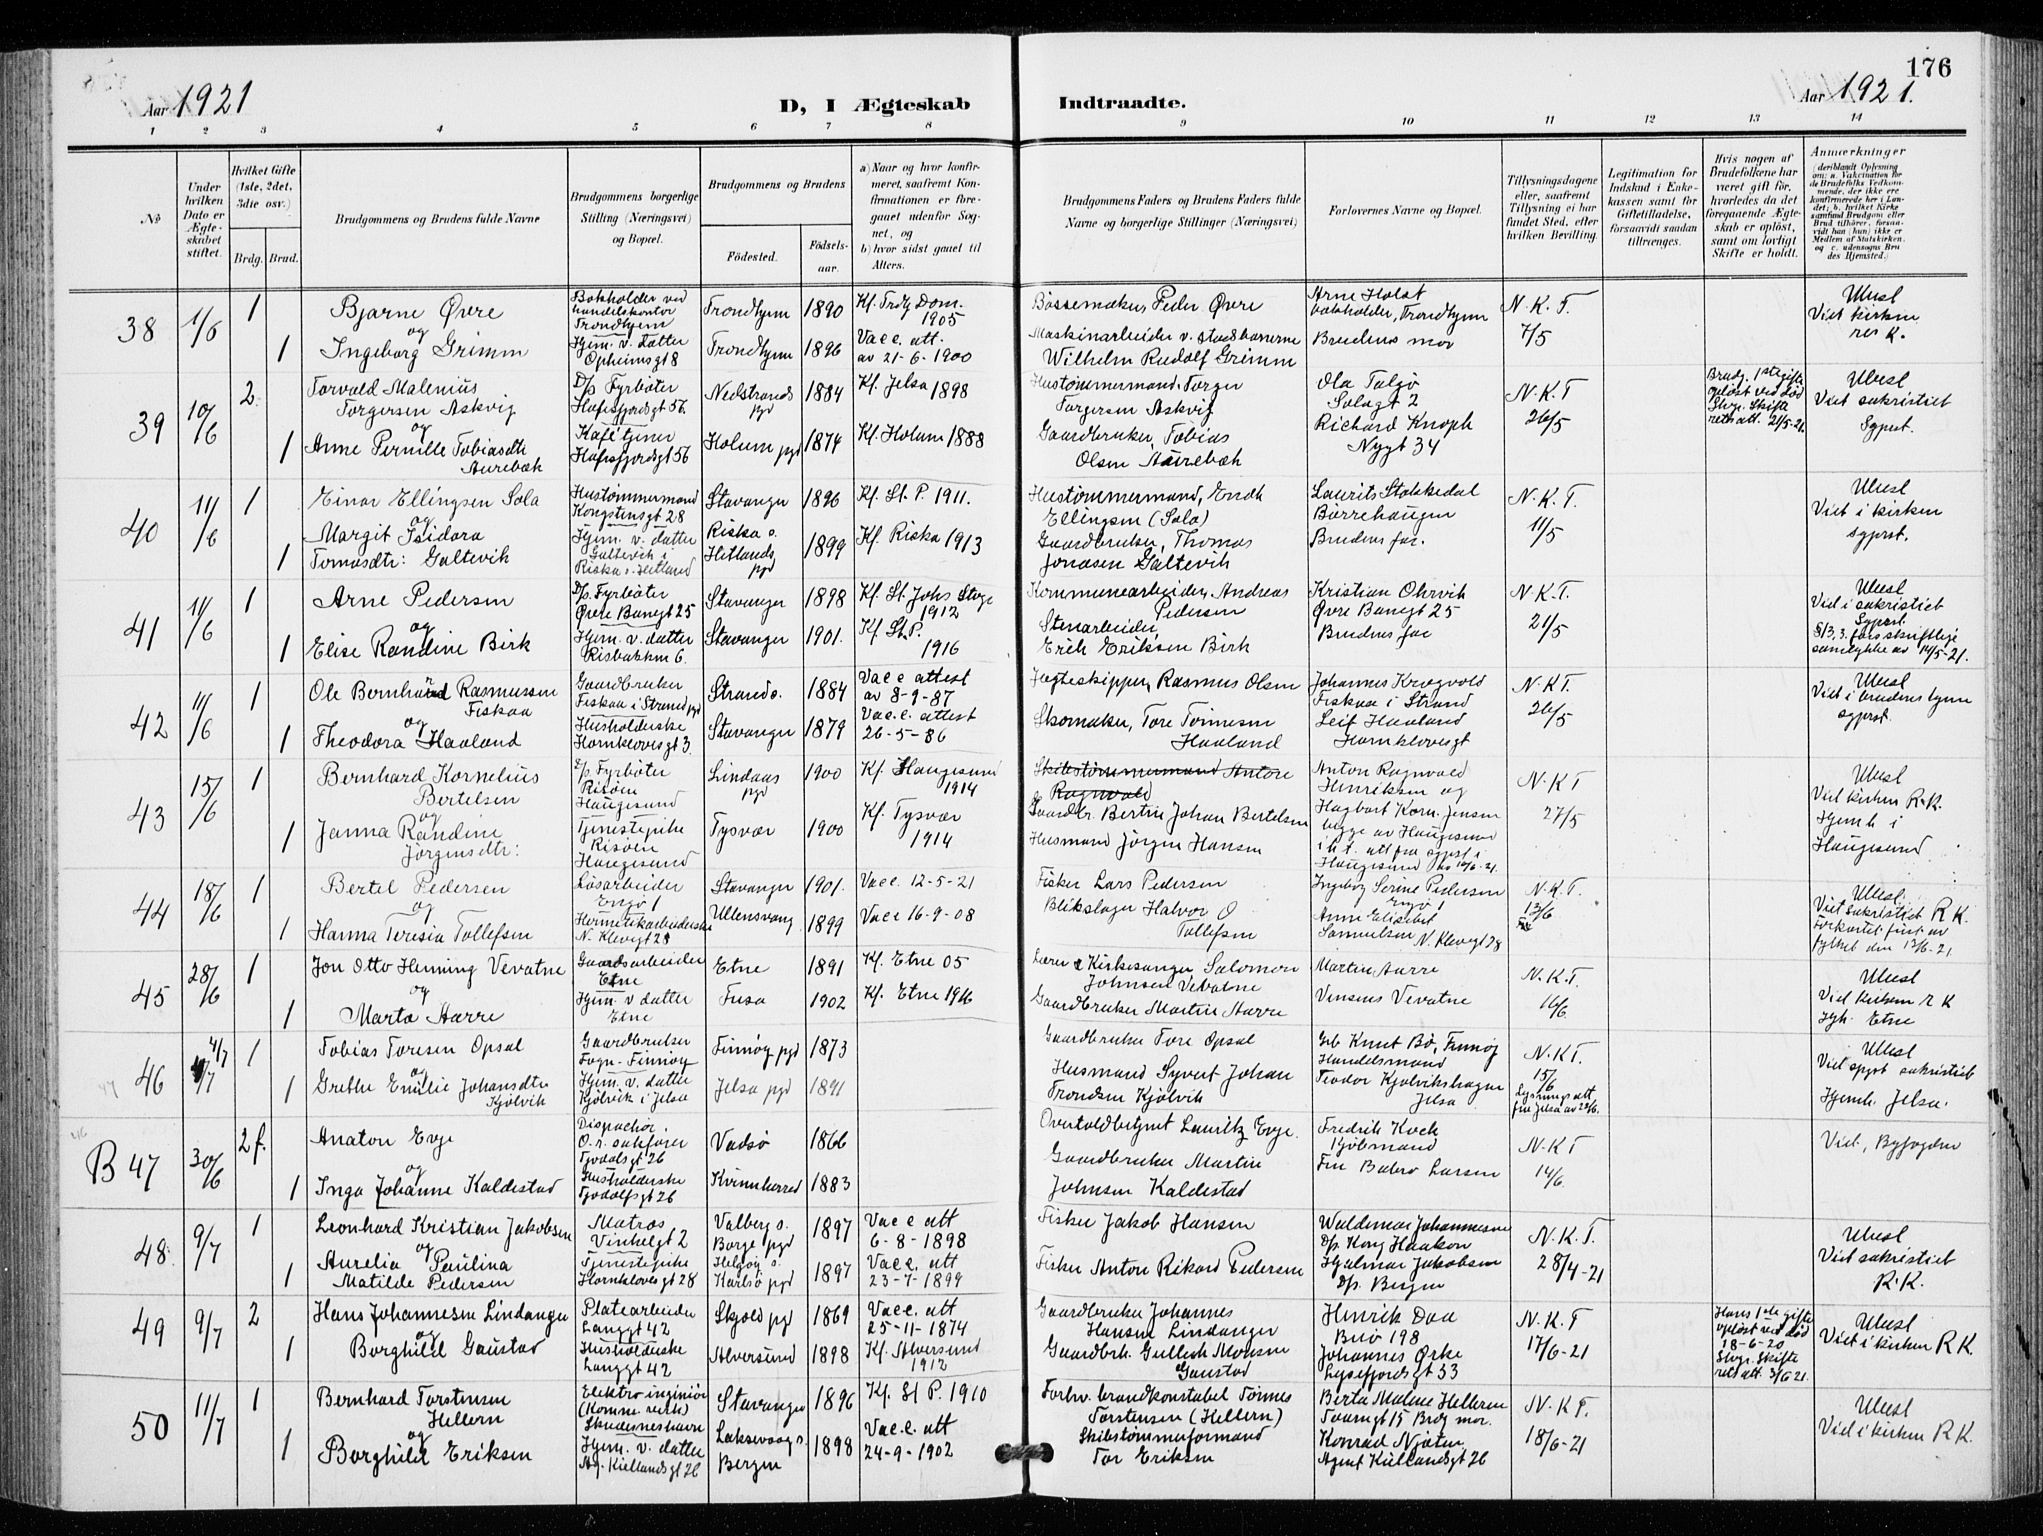 176
Aar 1921
D, I Ægteskab
Indtraadte.
Aar 1921.
1 2 3 4 5 6 7 8 9 10 11 12 13 14
No
Under hvilken Dato er Ægteskabet stiftet.
Hvilket Gifte (1ste, 2det, 3die osv.)
Brdg. Brud.
Brudgommens og Brudens fulde Navne
Brudgommens borgerlige Stilling (Næringsvei) og Bopæl.
Brudgommens og Brudens
Födested.
Födselsaar.
a) Naar og hvor konfirmeret, saafremt Konfirmationen er foregaaet udenfor Sognet, og
b) hvor sidst gaaet til Alters.
Brudgommens Faders og Brudens Faders fulde Navne og borgerlige Stillinger (Næringsvei)
Forlovernes Navne og Bopæl.
Tillysningsdagene eller, saafremt Tillysning ei har fundet Sted, efter hvilken Bevilling.
Legitimation for Indskud i Enkekassen samt for Giftetilladelse, forsaavidt saadan tiltrænges.
Hvis nogen af Brudefolkene har været gift før, hvorledes da det foregaaende Ægteskab er opløst, samt om lovligt Skifte er holdt.
Anmærkninger
38 1/6 1
Bjarne Øvre
og
Ingeborg Grimm
1
Bokholder ved handelskontor Trondhjem
Hjem. v. datter
Opheimsgt 8
Trondhjem 1890
Trondhjem 1896
Kf. Trdhj Dom. 1905
Vacc. att. av 21-6-1900
Bøssemaker Peder Øvre
Maskinarbeider v. statsbanerne
Wilhelm Rudolf Grimm
Arne Holst
bokholder, Trondhjem
Brudens mor
N.K.T.
7/5
Ubest
Viet i kirken
res K.
39 10/6 2
Torvald Malenius
Torgersen Askvig
og
Anne Pernille Tobiasdtr
Aurebæk
1
D/p Fyrbøter
Hafrsfjordsgt 56.
Kafétjener
Hafrsfjordsgt 56
Nedstrands pgd 1884
Holum pgd 1874
Kf. Jelsa 1898
Kf. Holum 1888
Hustømmermand Torger
Torgersen Askvig
Gaardbruker, Tobias
Olsen Aurebæk
Ola Talgø
Solagt 2
Richard Knoph
Nygt 34
N.K.T
26/5
Brudg. 1ste gifte
opløst ved død
Stvgr. Skifte
rets att. 21/5-21.
Ubest
Viet sakristiet
Sgprst.
40 11/6 1
Einar Ellingsen Sola
og
Margit Isidora
Tomasdtr: Galtevik
1
Hustømmermand
Kongstensgt 28
Hjem. v. datter
Galtevik i
Riska s. Hetland
Stavanger 1896
Riska s. Hetlands pgd 1899
Kf. St. P. 1911.
Kf. Riska 1913
Hustømmermand, Endr.
Ellingsen (Sola)
Gaardbruker, Thomas
Jonasen Galtevik
Laurits Stokkedal
Børrehaugen
Brudens far.
N.K.T.
11/5
Ubest
Viet i kirken
sgprst.
41 11/6 1
Arne Pedersen
og
Elise Randine Birk
1
D/p. Fyrbøter
Øvre Banegt 25
Hjem. v. datter
Risbakken 6.
Stavanger 1898
Stavanger 1901.
Kf. St. Johs Stvgr 1912
Kf. St. P. 1916
Kommunearbeider, Andreas
Pedersen
Stenarbeider,
Erik Eriksen Birk
Kristian Ohrvik
Øvre Banegt 25
Brudens far
N.K.T.
21/5
Ubest
Viet i sakristiet
Sgprst
§13,3. fars skriftlige
samtykke av 14/5-21.
42 11/6 1
Ole Bernhard Rasmussen
Fiskaa
og
Theodora Haaland
1
Gaardbruker
Fiskaa i Strand pgd
Husholderske
Hornklovesgt 3.
Strand s. 1884
Stavanger 1879
Vacc attest av 8-9-87
Vacc. attest 26-5-86
Jægteskipper, Rasmus Olsen
Skomaker, Tore Tønnesen
Haaland
Johannes Krogvold
Fiskaa i Strand
Leif Haaland
Hornklovesgt
N.K.T.
26/5
Ubest
Viet i brudens hjem
sgprst.
43 15/6 1
Bernhard Kornelius
Bertelsen
og
Janna Randine
Jørgensdtr:
1
D/p Fyrbøter
Risøen
Haugesund
Tjenestepike
Risøen
Haugesund
Lindaas pgd 1900
Tysvær 1900
Kf. Haugesund 1914
Kf. Tysvær 1914
Skibstømmermand Antore
Ragnvald
Gaardbr. Bertin Johan Bertelsen
Husmand Jørgen Hansen
Anton Ragnvald
Henriksen og
Hagbart Korn. Jensen
begge av Haugesund
i h.t. att fra sgprst i
Haugesund av 10/6-21.
N.K.T
27/5
Ubest
Viet kirken R.K.
Hjemh. i
Haugesund
44 18/6 1
Bertel Pedersen
og
Hanna Teresia Tollefsen
1
Løsarbeider
Engø 1
Hermetikarbeiderske
N. Klevegt 28
Stavanger 1901.
Ullensvang 1899
Vacc. 12-5-21
Vacc 16-9-08
Fisker Lars Pedersen
Blikslager Halvor O
Tollefsen
Ingeborg Serine Pedersen
Engø 1
Anne Elisabet
Samuelsen N. Klevegt 28
N.K.T.
13/6
Ubest,
Viet sakristiet R.K.
Forkortet frist av
fylket den 13/6-21
45 28/6 1
Jon Otto Heming Vevatne
og
Marta Aarre
1
Gaardsarbeider
Etne
Hjem. v datter
Etne
Etne 1891
Fusa 1902
Kf. Etne 05
Kf. Etne 1916
Lærer & Kirkesanger Salomon
Johnsen Vevatne
Gaardbruker Martin Aarre
Martin Aarre
Vinsens Vevatne
N.K.T.
16/6.
Ubest
Viet kirken R K
Hjh. Etne
46 4/7 1
Tobias Toresen Opsal
og
Grethe Emilie Johansdtr
Kjølvik
1
Gaardbruker
Fogn - Finnøy
Hjem. v. datter
Kjølvik i Jelsa
Finnøy pgd 1873
Jelsa pgd 1891
Gaardbruker Tore Opsal
Husmand Syvert Johan
Trondsen Kjølvik
Grb Knut Bø, Finnøy
Handelsmand
Teodor Kjølvikshagen
Jelsa
N.K.T.
15/6
Lysningsatt
fra Jelsa av 28/6.
Ubest
Viet sgprst sakristiet
Hjemh. Jelsa.
B 47 30/6 2 f.
Anaton Evje
og
Inga Johanne Kaldestad
1
Dispachør.
O.r. sakfører
Tjodolfsgt 26
Husholderske
Tjodolfsgt 26
Vadsø 1866
Kvinnherred 1883
Overtoldbetjent Lauritz Evje.
Gaardbruker Martin
Johnsen Kaldestad
Fredrik Koch
Kjøbmand
Fru Larsen
N.K.T
14/6.
Viet, Byfogden
48. 9/7 1
Leonhard Kristian Jakobsen
og
Aurelia Paulina
Matilde Pedersen
1
Matros
Vinkelgt 2
Tjenestepike
Hornklovesgt 28
Valberg s.
Borge pgd 1897
Helgøy s.
Karlsø pgd 1897
Vacc att 6-8-1898
Vacc. att 23-7-1899
Fisker Jakob Hansen
Fisker Anton Rikard Pedersen
Waldemar Johannesen
D/p. Kong Haakon
Hjalmar Jakobsen
D/p. Bergen
N.K.T.
28/4-21
Ubest
Viet sakristiet
R.K.
49 9/7 2
Hans Johannesen Lindanger
og
Borghild Gaustad
1
Platearbeider
Langgt 42
Husholderske
Langgt 42
Skjold pgd 1869
Alversund 1898
Vacc. att 25-11-1874
Kf. Alversund 1912
Gaardbruker Johannes
Hansen Lindanger
Gaardbr. Gullech Monsen
Gaustad
Henrik Daa
Buø 198
Johannes Ørke
Lysefjordsgt 53
N.K.T
17/6-21
Hans 1ste gifte
opløst ved død
18-6-20
Stvgr. Skifte
ret att. 3/6 21.
Ubest
Viet i kirken R K.
50 11/7 1
Bernhard Torstensen
Hellern
og
Borghild Eriksen
1
Elektroingeniør
(Komm. verk)
Skudeneshavn
Hjem. v. datter
Ag. Kiellandsgt 26
Stavanger 1896
Laksevaag s.
Bergen 1898
Kf. St P. 1910
Vacc. att 24-9-1902
Forhv. brandkonstabel Tønnes
Torstensen (Hellern)
Skibstømmerformand
Tor Eriksen
Berta Malene Hellern
Taarngt 15 Brdg mor.
Konrad Njøten
Agent Kiellandsgt 26
N.K.T.
18/6-21
Ubest
Viet i kirken R K.